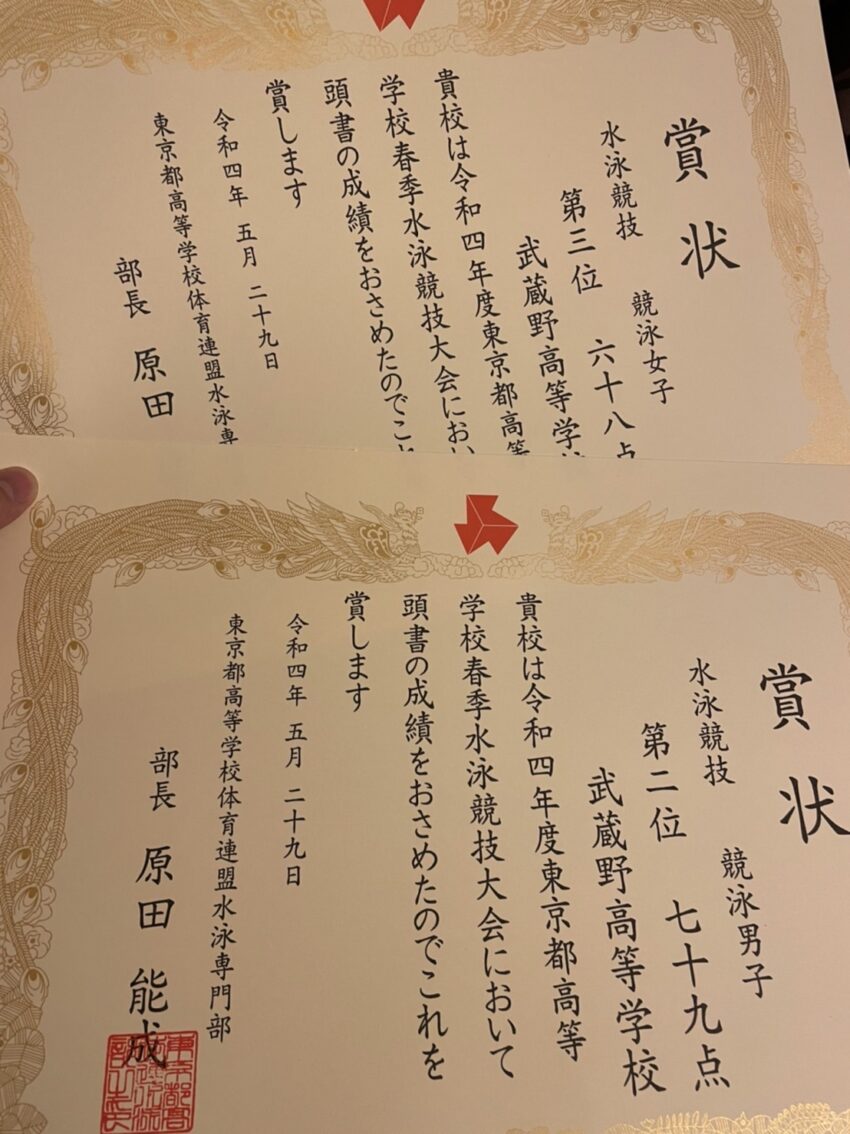 賞状
水泳競技 競泳女子
第三位 六十八点
武蔵野高等学
貴校は令和四年度東京都高等
学校春季水泳競技大会におい
頭書の成績をおさめたのでこれ
賞します
令和四年 五月 二十九日
東京都高等学校体育連盟水泳専
部長 原田
賞状
水泳競技 競泳男子
第二位 七十九点
武蔵野高等学校
貴校は令和四年度東京都高等
学校春季水泳競技大会において
頭書の成績をおさめたのでこれを
賞します
令和四年 五月 二十九日
東京都高等学校体育連盟水泳専門部
部長 原田 能成